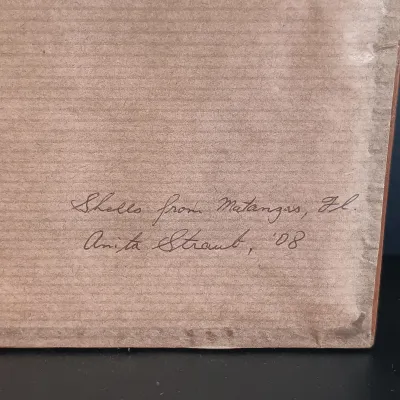 Shells from Matanzas, Fl.
Anita Straub, '08